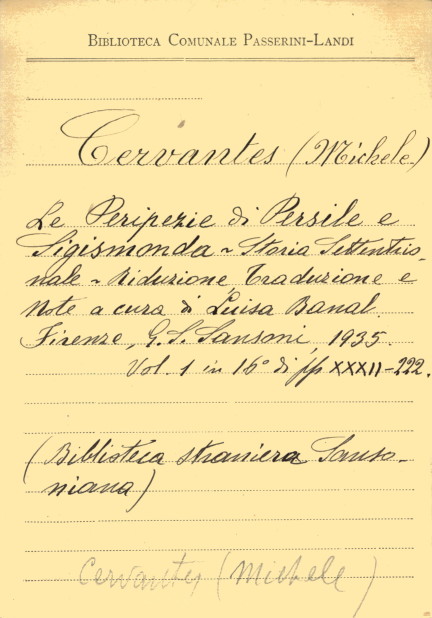 BIBLIOTECA COMUNALE PASSERINI-LANDI
Cervantes (Michele)
Le Peripezie di Persile e
Sigismonda ~ Storia Settentrio-
nale ~ Riduzione, Traduzione e
Note a cura di Luisa Banal.
Firenze, G. S. Sansoni, 1935.
Vol. 1 in 16° di pp XXXII-222.
(Biblioteca straniera Sanso-
niana)
Cervantes (Michele)